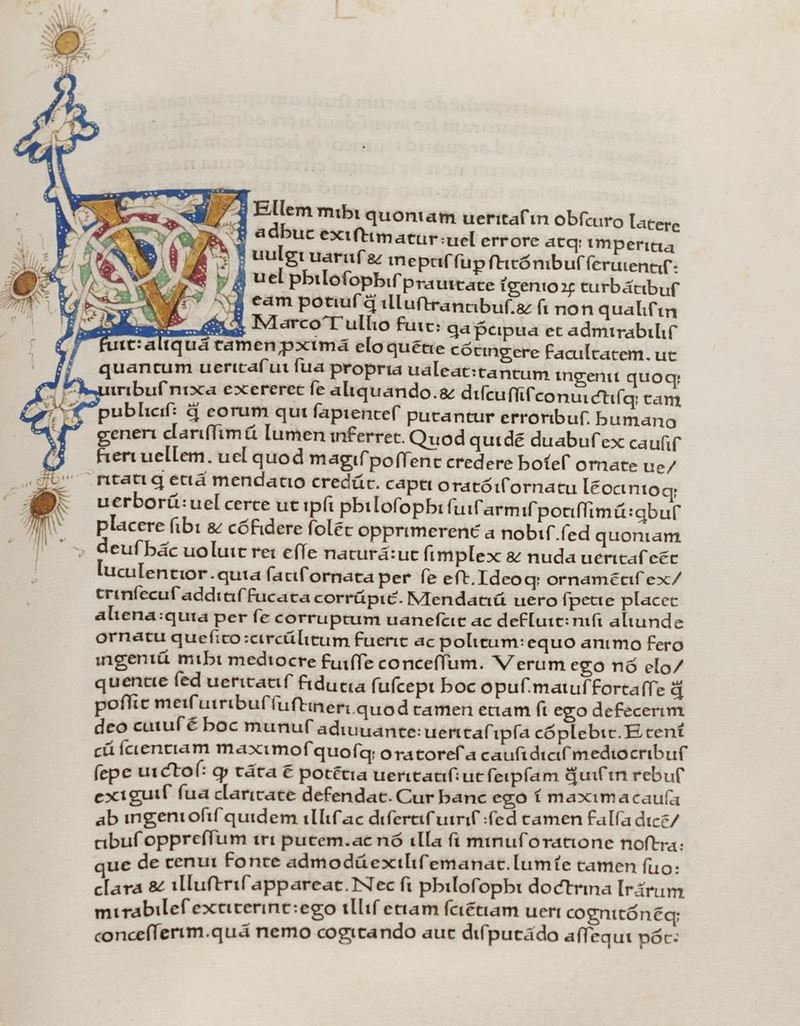 VEllem mihi quoniam ueritaſ in obſcuro latere
adhuc exiſtimatur:uel errore atq; imperitia
uulgi uariiſ & ineptiſ ſuꝑſtitónibuſ ſeruientiſ:
uel philoſophiſ prauitate īgenioꝝ turbātibuſ
eam potiuſ q̄ illuſtrantibuſ.& ſi non qualiſ in
Marco Tullio fuit: qa p̄cipua et admirabiliſ
fuit:aliquā tamen ꝓximā eloquētie cōtingere facultatem. ut
quantum ueritaſ ui ſua propria ualeat:tantum ingenii quoq;
uiribuſ nixa exereret ſe aliquando.& diſcuſſiſ conuictiſq; tam
publiciſ: q̄ eorum qui ſapienteſ putantur erroribuſ. humano
generi clariſſimū lumen inferret. Quod quidē duabuſ ex cauſiſ
fieri uellem. uel quod magiſ poſſent credere hoīeſ ornate ue/
ritati q etiā mendatio credūt. capti oratōiſ ornatu lēocinioq;
uerborū:uel certe ut ipſi philoſophi ſuiſ armiſ potiſſimū:qbuſ
placere ſibi & cōfidere ſolēt opprimerent̄ a nobiſ.ſed quoniam
deuſ hāc uoluit rei eſſe naturā:ut ſimplex & nuda ueritaſ eēt
luculentior.quia ſatiſ ornata per ſe eſt.Ideoq; ornamētiſ ex/
trinſecuſ additiſ fucata corrūpit̄. Mendatiū uero ſpetie placet
aliena:quia per ſe corruptum uaneſcit ac defluit:niſi aliunde
ornatu queſito:circūlitum fuerit ac politum:equo animo fero
ingeniū mihi mediocre fuiſſe conceſſum. Verum ego nō elo/
quentie ſed ueritatiſ fiducia ſuſcepi hoc opuſ.maiuſ fortaſſe q̄
poſſit meiſ uiribuſ ſuſtineri.quod tamen etiam ſi ego defecerim
deo cuiuſ ē hoc munuſ adiuuante:ueritaſ ipſa cōplebit.Etenī
cū ſcientiam maximoſ quoſq; oratoreſ a cauſidiciſ mediocribuſ
ſepe uictoſ: ꝙ tāta ē potētia ueritatiſ:ut ſeipſam q̄uiſ in rebuſ
exiguiſ ſua claritate defendat. Cur hanc ego ī maxima cauſa
ab ingenioſiſ quidem illiſ ac diſertiſ uiriſ :ſed tamen falſa dicē/
tibuſ oppreſſum iri putem.ac nō illa ſi minuſ oratione noſtra:
que de tenui fonte admodū exiliſ emanat.lumīe tamen ſuo:
clara & illuſtriſ appareat.Nec ſi philoſophi doctrina lr̄arum
mirabileſ extiterint:ego illiſ etiam ſciētiam ueri cognitōnēq;
conceſſerim.quā nemo cogitando aut diſputādo aſſequi pōt: